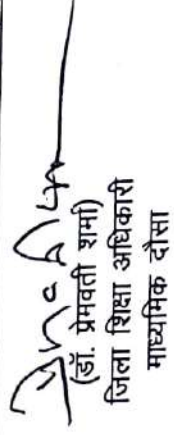 (डॉ. प्रेमवती शर्मा)
जिला शिक्षा अधिकारी
माध्यमिक दौसा